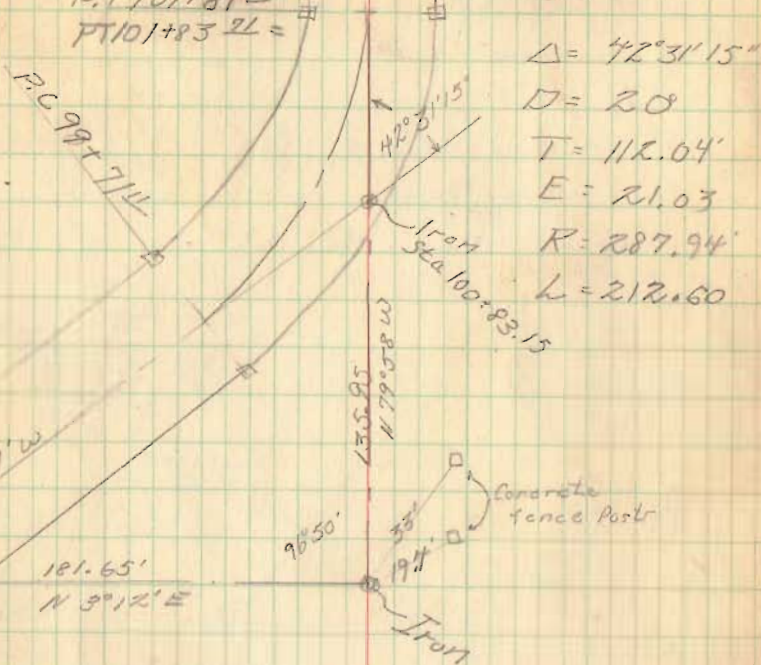 PT 101+83 71 =
P.C 99+71 11
Δ= 42°31'15"
D= 20
T= 112.04'
E= 21.03
R= 287.94'
L= 212.60
42°31'15"
Iron
Sta 100+83.15
135.95
N 79°58 W
' W
Concrete
fence Posts
33'
19.4'
96°50'
181.65'
N 3°12' E
Iron